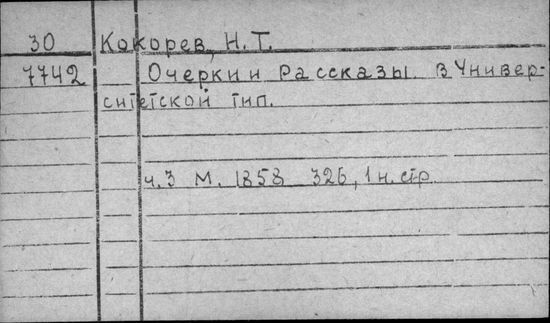 30 Кокорев, Н. Т.
7742 Очерки и рассказы. В Универ-
ситетской тип.
ч. 3 М. 1858 326, 1 н. стр.